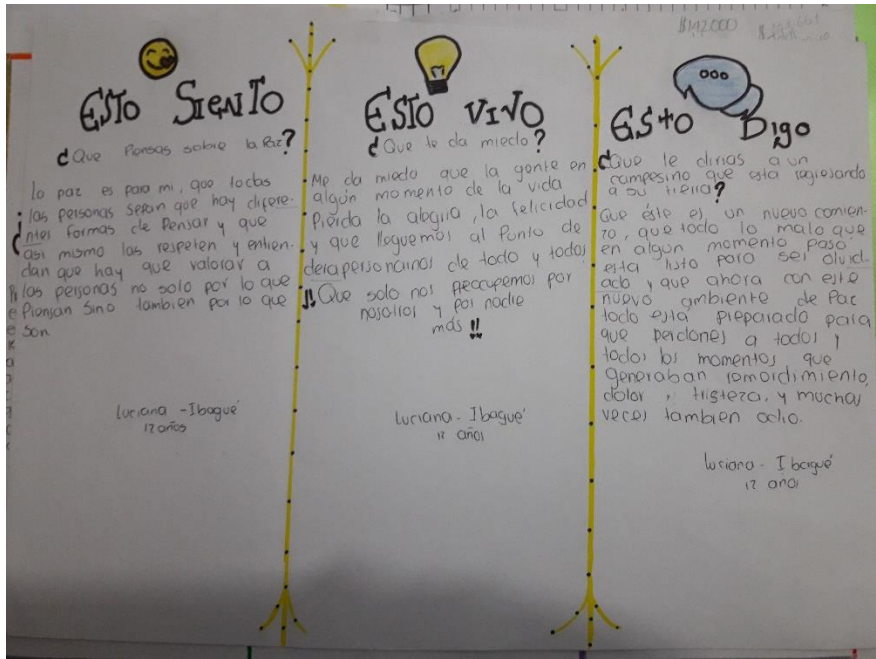 $142.000
ESTO SIENTO
¿Que Piensas sobre la Paz?
la paz es para mi, que todas
las personas sepan que hay difere-
ntes formas de Pensar y que
asi mismo las respeten y entien-
dan que hay que valorar a
las personas no solo por lo que
Piensan Sino tambien por lo que
Son
Luciana - Ibagué
12 años
ESTO VIVO
¿Que te da miedo?
Me da miedo que la gente en
algún momento de la vida
Pierda la alegria, la felicidad
y que lleguemos al Punto de
desapersonarnos de todo y todos
¡¡Que solo nos preocupemos por
nosotros y por nadie
más!!
Luciana - Ibagué
12 años
ESto Digo
¿Que le dirias a un
campesino que esta regresando
a su tierra?
Que éste es un nuevo comien-
zo, que todo lo malo que
en algún momento pasó
esta listo para ser olvid-
ado y que ahora con este
nuevo ambiente de Paz
todo está preparado para
que perdones a todos y
todos los momentos que
generaban remordimiento,
dolor, tristeza, y muchas
veces tambien odio.
Luciana - Ibagué
12 años